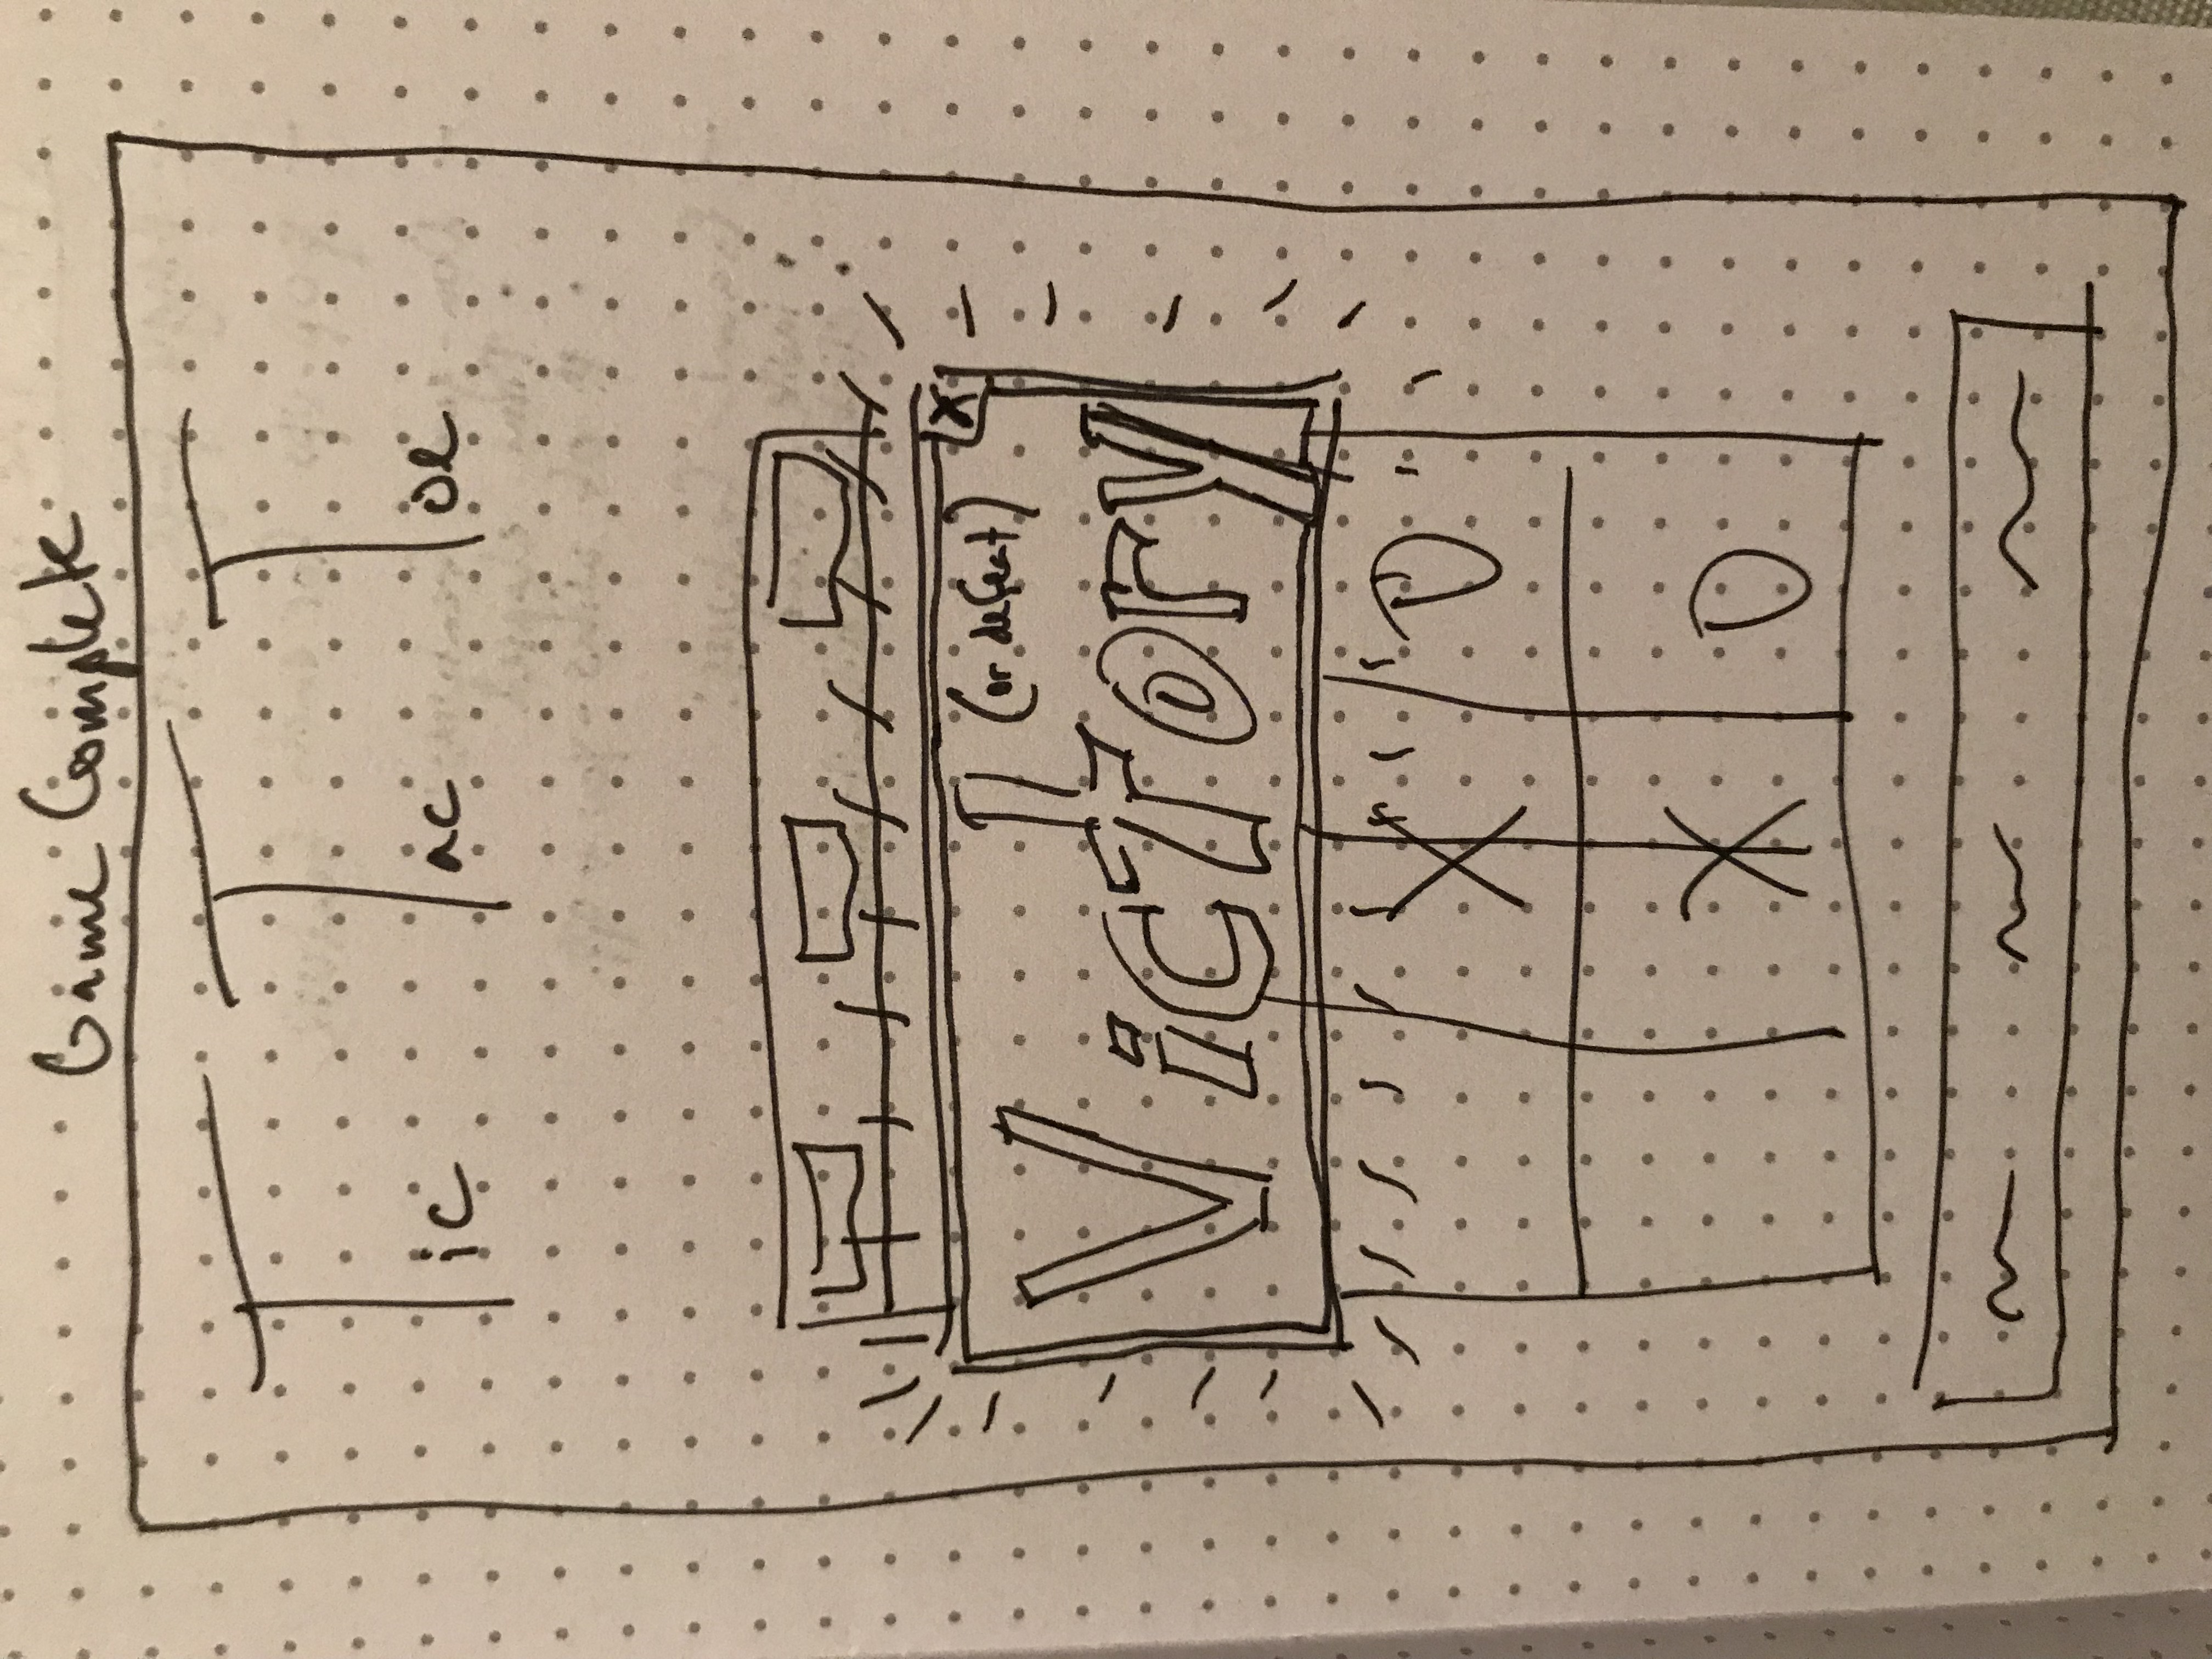 Game Complete
Tic Tac Toe
X
(or defeat)
Victory
X O
X O